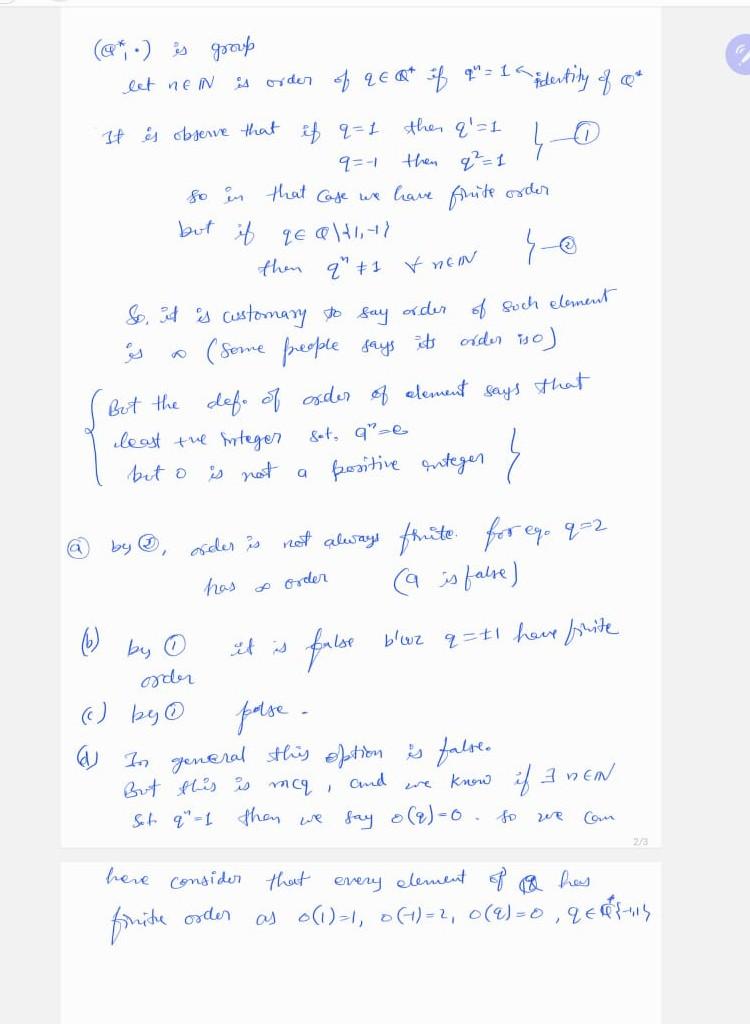 (Q*, ·) is group
let n ∈ IN is order of q ∈ Q* if qⁿ = 1 ↰ identity of Q*
It is observe that if q=1 then q¹=1
q=-1 then q²=1 } — ①
so in that case we have finite order
but if q ∈ Q\{1,-1}
then qⁿ ≠ 1 ∀ n ∈ IN } — ②
So, it is customary to say order of such element
is ∞ (some people says its order is 0)
{ But the def. of order of element says that
least +ve integer s.t. qⁿ=e
but 0 is not a positive integer }
(a) by ②, order is not always finite. for eg. q=2
has ∞ order (a is false)
(b) by ① it is false b'coz q=±1 have finite
order
(c) by ① false.
(d) In general this option is false.
But this is mcq, and we know if ∃ n ∈ IN
s.t. qⁿ=1 then we say o(q)=0. so we can
2/3
here consider that every element of Q has
finite order as o(1)=1, o(-1)=2, o(q)=0, q ∈ Q*\{-1,1}